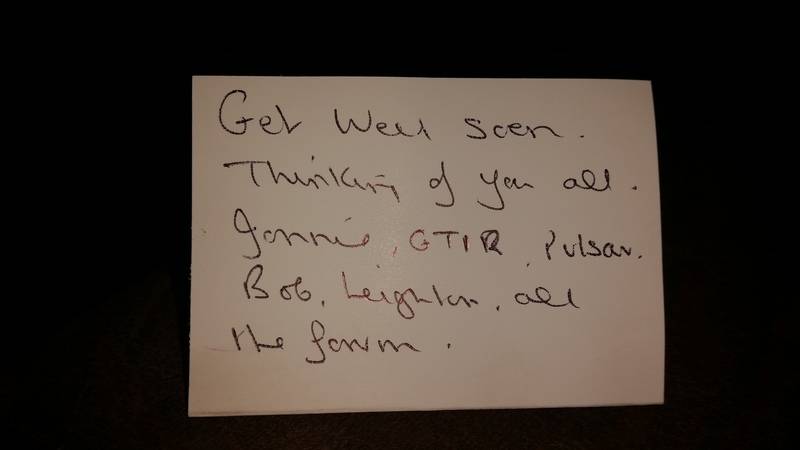 Get Well soon.
Thinking of you all.
Jonnie, GTIR, Pulsar.
Bob, Leighton, all
the forum.